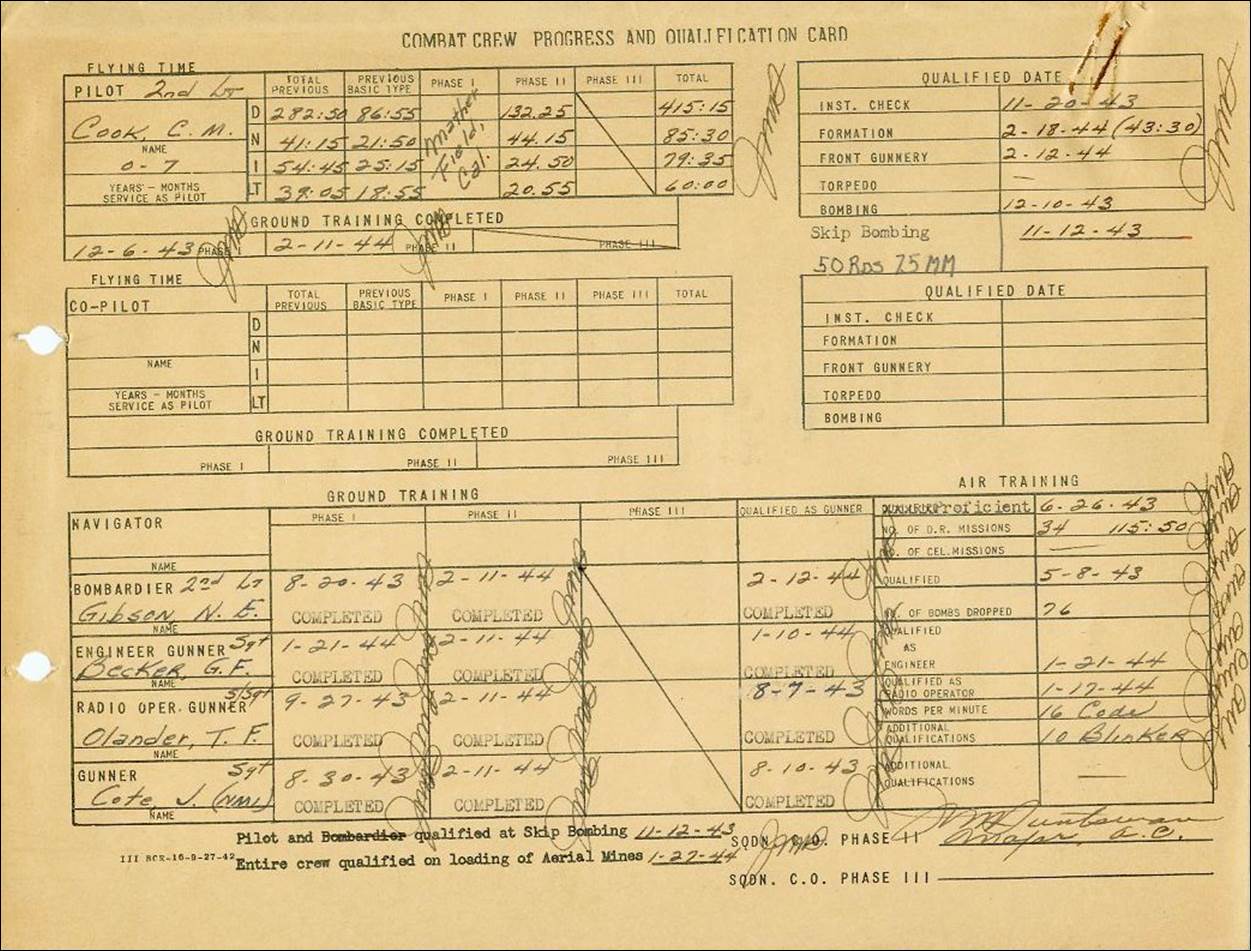 COMBAT CREW PROGRESS AND QUALIFICATION CARD
FLYING TIME
PILOT 2nd Lt
TOTAL PREVIOUS PREVIOUS BASIC TYPE PHASE I PHASE II PHASE III TOTAL
Cook, C. M.
NAME
0-7
YEARS - MONTHS
SERVICE AS PILOT
D 282:50 86:55 132.25 415:15
N 41:15 21:50 44.15 85:30
I 54:45 25:15 24.50 79:35
LT 39:05 18:55 20.55 60:00
Mather Field, Cal.
GROUND TRAINING COMPLETED
12-6-43 PHASE I 2-11-44 PHASE II PHASE III
QUALIFIED DATE
INST. CHECK 11-20-43
FORMATION 2-18-44 (43:30)
FRONT GUNNERY 2-12-44
TORPEDO —
BOMBING 12-10-43
Skip Bombing 11-12-43
50 RDS 75 MM
FLYING TIME
CO-PILOT
TOTAL PREVIOUS PREVIOUS BASIC TYPE PHASE I PHASE II PHASE III TOTAL
D
N
NAME
I
YEARS - MONTHS
SERVICE AS PILOT
LT
GROUND TRAINING COMPLETED
PHASE I PHASE II PHASE III
QUALIFIED DATE
INST. CHECK
FORMATION
FRONT GUNNERY
TORPEDO
BOMBING
GROUND TRAINING
PHASE I PHASE II PHASE III QUALIFIED AS GUNNER
NAVIGATOR
NAME
BOMBARDIER 2nd Lt 8-20-43 2-11-44 2-12-44
Gibson, N. E. COMPLETED COMPLETED COMPLETED
NAME
ENGINEER GUNNER Sgt 1-21-44 2-11-44 1-10-44
Becker, G. F. COMPLETED COMPLETED COMPLETED
NAME
RADIO OPER. GUNNER S/Sgt 9-27-43 2-11-44 8-7-43
Olander, T. F. COMPLETED COMPLETED COMPLETED
NAME
GUNNER Sgt 8-30-43 2-11-44 8-10-43
Cote, J. (NMI) COMPLETED COMPLETED COMPLETED
NAME
AIR TRAINING
Proficient 6-26-43
NO. OF D.R. MISSIONS 34 115:50
NO. OF CEL. MISSIONS —
QUALIFIED 5-8-43
NO. OF BOMBS DROPPED 76
QUALIFIED
AS
ENGINEER 1-21-44
QUALIFIED AS
RADIO OPERATOR 1-17-44
WORDS PER MINUTE 16 Code
ADDITIONAL
QUALIFICATIONS 10 Blinker
ADDITIONAL
QUALIFICATIONS —
Pilot and Bombardier qualified at Skip Bombing 11-12-43
Entire crew qualified on loading of Aerial Mines 1-27-44
SQDN. C.O. PHASE II
Major, A.C.
SQDN. C.O. PHASE III